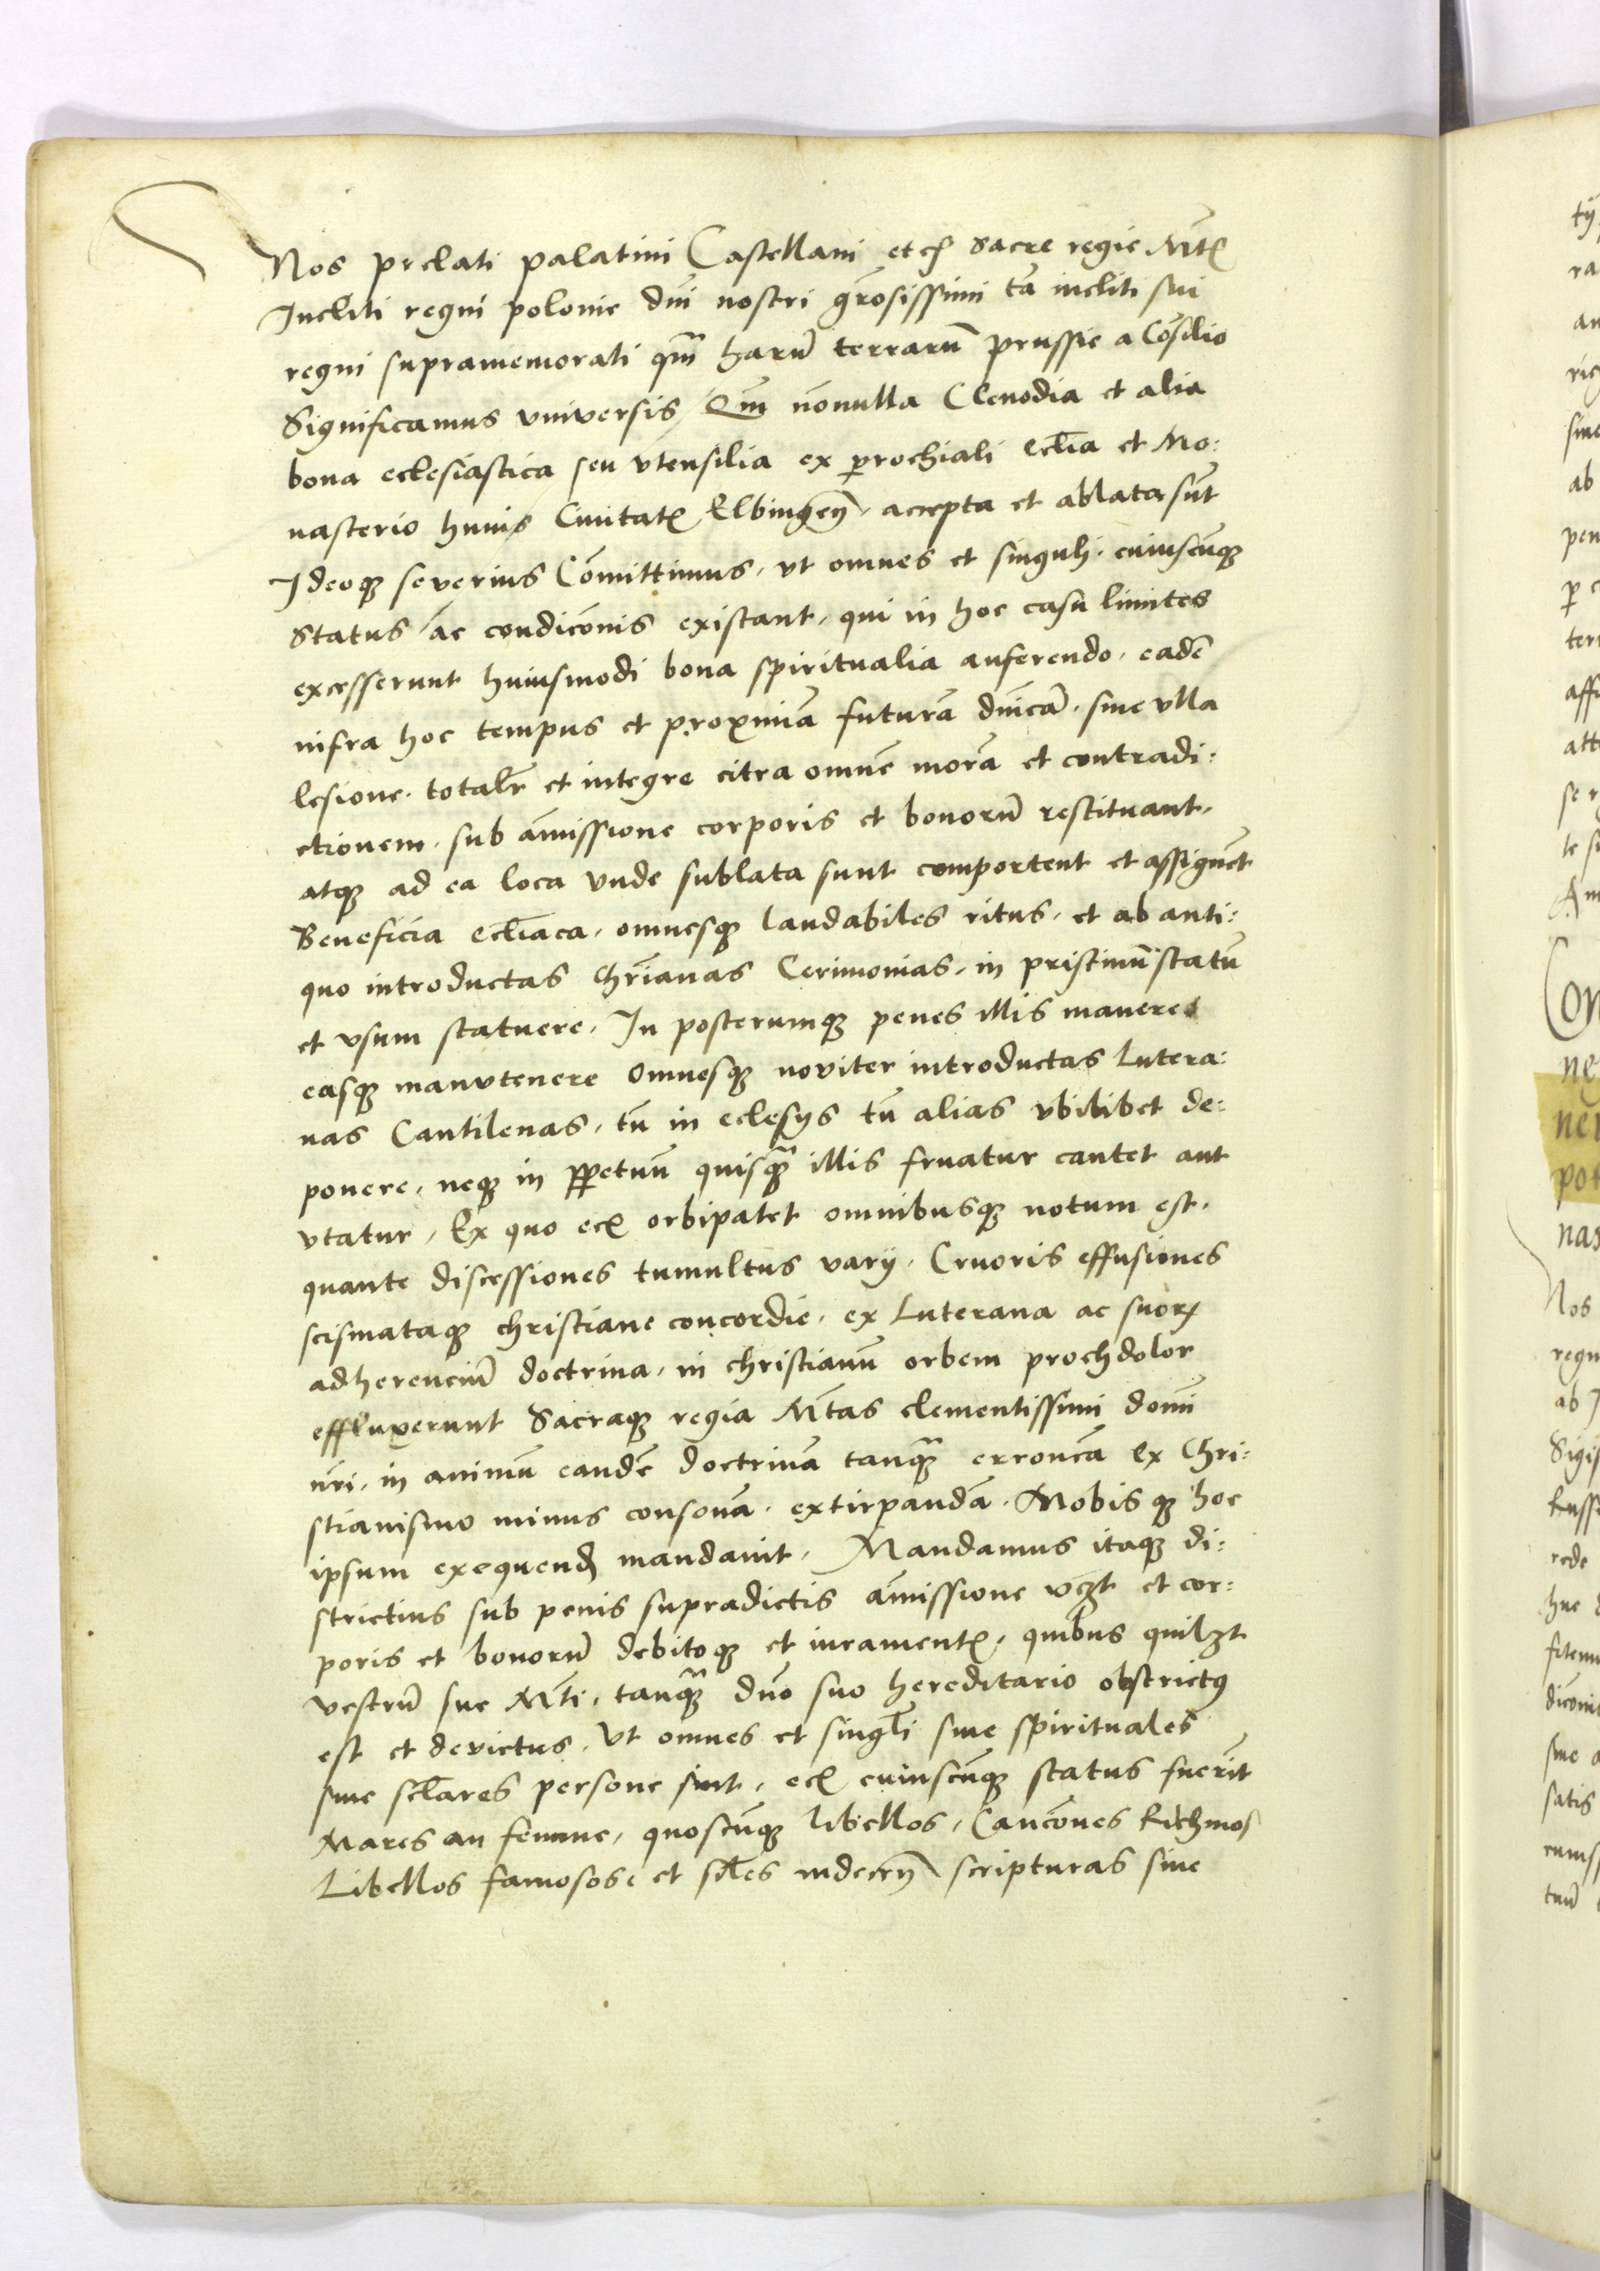 Nos prelati palatini Castellani etc sacre regie Mtis
Incliti regni polonie dni nostri grosissimi ta incliti sui
regni supramemorati qm haru terraru prussie a Cosilio
Significamus vniversis / Qm nonulla Clenodia et alia
bona eclesiastica seu vtensilia ex prochiali eclia et Mo:
nasterio huius Ciuitatis Elbingen, accepta et ablata sut
Ideoq severius Comittimus, vt omnes et singuli, cuiuscuq
Status ac condiconis existant, qui in hoc casu limites
excesserunt huiusmodi bona spiritualia auferendo, eade
infra hoc tempus et proxima futura dnica, sine vlla
lesione, totalr et integre citra omne mora et contradi:
ctionem, sub amissione corporis et bonoru restituant,
atq ad ea loca vnde sublata sunt comportent et assignet
Beneficia ecliaca, omnesq laudabiles ritus, et ab anti:
quo introductas chrianas Cerimonias, in pristinu statu
et vsum statuere, In posterumq penes illis manere
easq manvtenere omnesq noviter introductas Lutera:
nas Cantilenas, tu in eclesijs tu alias vbilibet de:
ponere, neq in ppetuu quisqua illis fruatur cantet aut
vtatur, Ex quo eciam orbi patet omnibusq notum est,
quante discessiones tumultus varij, Cruoris effusiones
scismataq christiane concordie, ex Luterana ac suorum
adherenciu doctrina, in christianu orbem prochdolor
effluxerunt Sacraq regia Mtas clementissimi domi
nri, in animu eande doctrina tanqua erronea ex Chri:
stianismo minus consona, extirpanda, Nobisq hoc
ipsum exequend mandauit, Mandamus itaq di:
strictius sub penis supradictis amissione vz et cor:
poris et bonoru debitoq et iuramentis, quibus quilzt
vestru sue Mti, tanqua dno suo hereditario obstrictus
est et devictus, Vt omnes et singli siue spirituales
siue sclares persone sint, eciam cuiuscuq status fuerit
Mares an femine, quoscuq libellos, Cancones Rithmos
Libellos famosos, et siles indecen scripturas siue